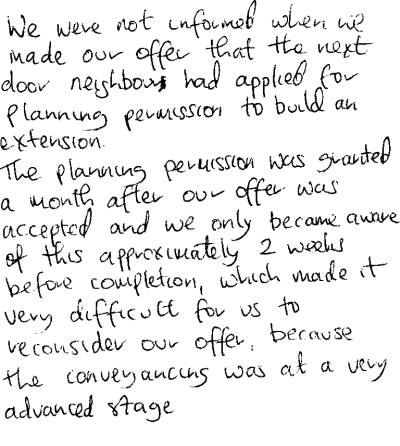 We were not informed when we
made our offer that the next
door neighbours had applied for
planning permission to build an
extension.
The planning permission was granted
a month after our offer was
accepted and we only became aware
of this approximately 2 weeks
before completion, which made it
very difficult for us to
reconsider our offer, because
the conveyancing was at a very
advanced stage